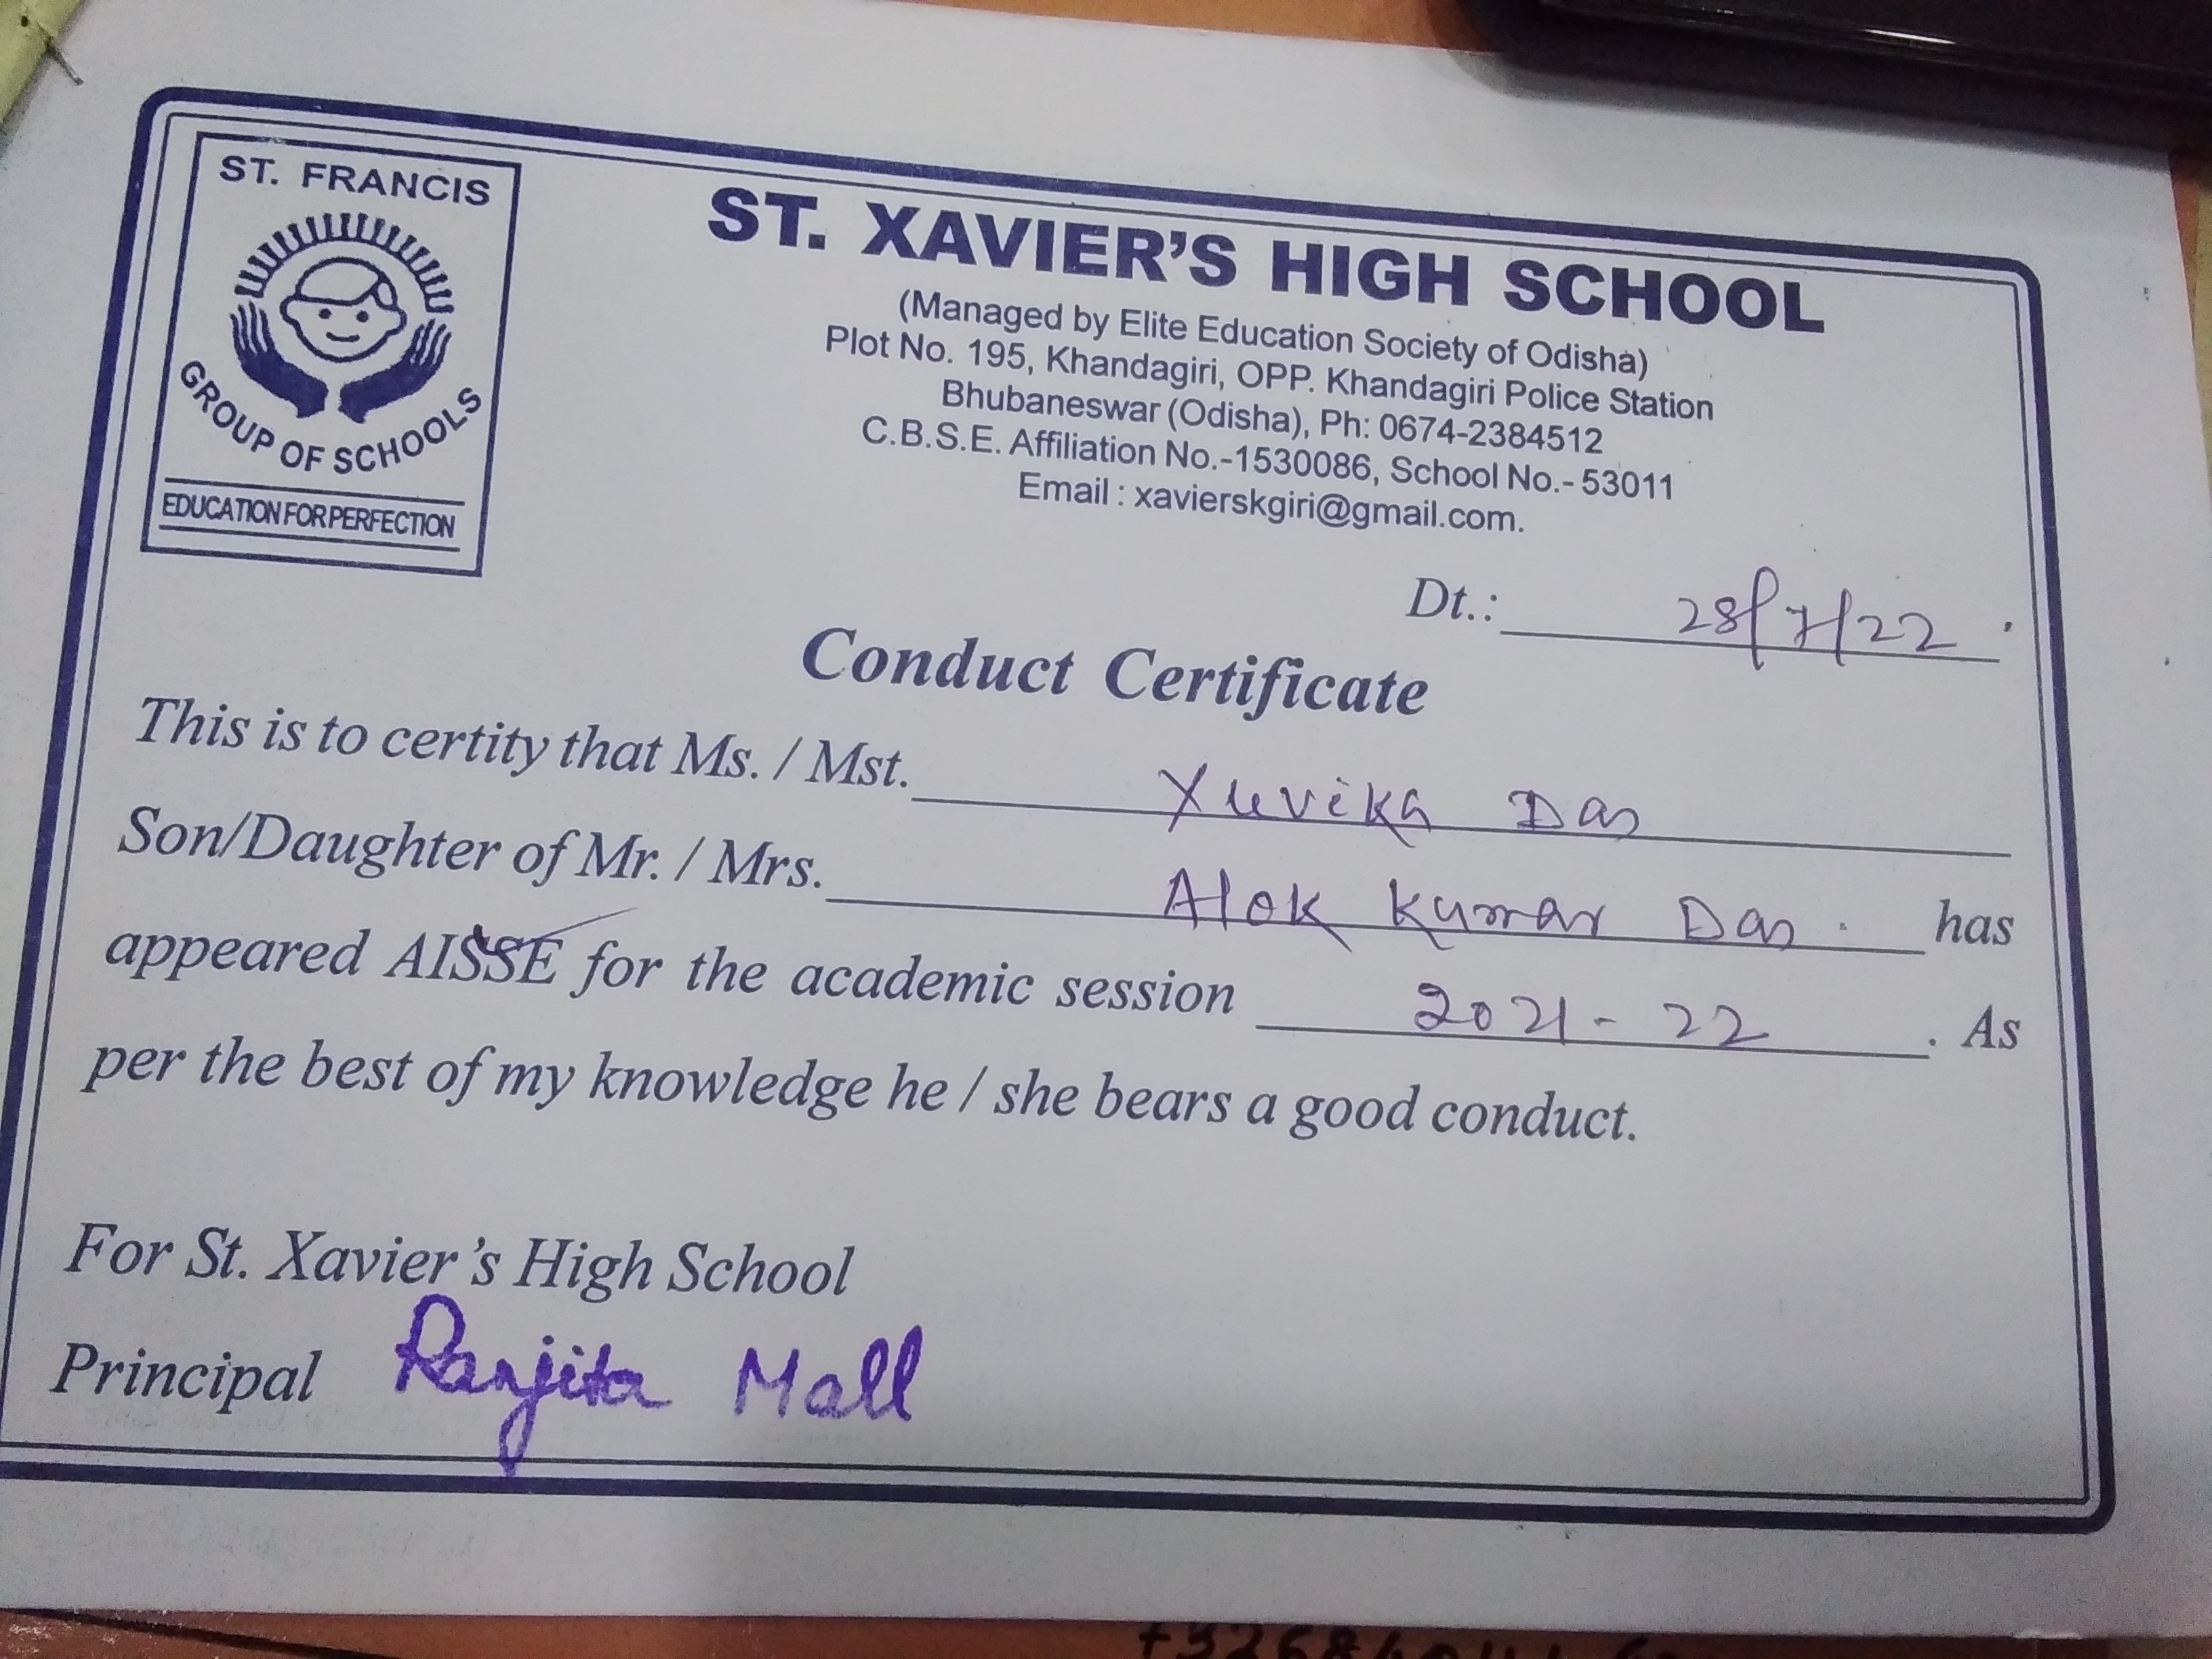 ST. FRANCIS
GROUP OF SCHOOLS
EDUCATION FOR PERFECTION
ST. XAVIER'S HIGH SCHOOL
(Managed by Elite Education Society of Odisha)
Plot No. 195, Khandagiri, OPP. Khandagiri Police Station
Bhubaneswar (Odisha), Ph: 0674-2384512
C.B.S.E. Affiliation No.-1530086, School No.- 53011
Email : xavierskgiri@gmail.com.
Dt.: 28/7/22
Conduct Certificate
This is to certity that Ms. / Mst. Yuvika Das
Son/Daughter of Mr. / Mrs. Alok Kumar Das. has
appeared AISSE for the academic session 2021-22. As
per the best of my knowledge he / she bears a good conduct.
For St. Xavier's High School
Principal Ranjita Mall